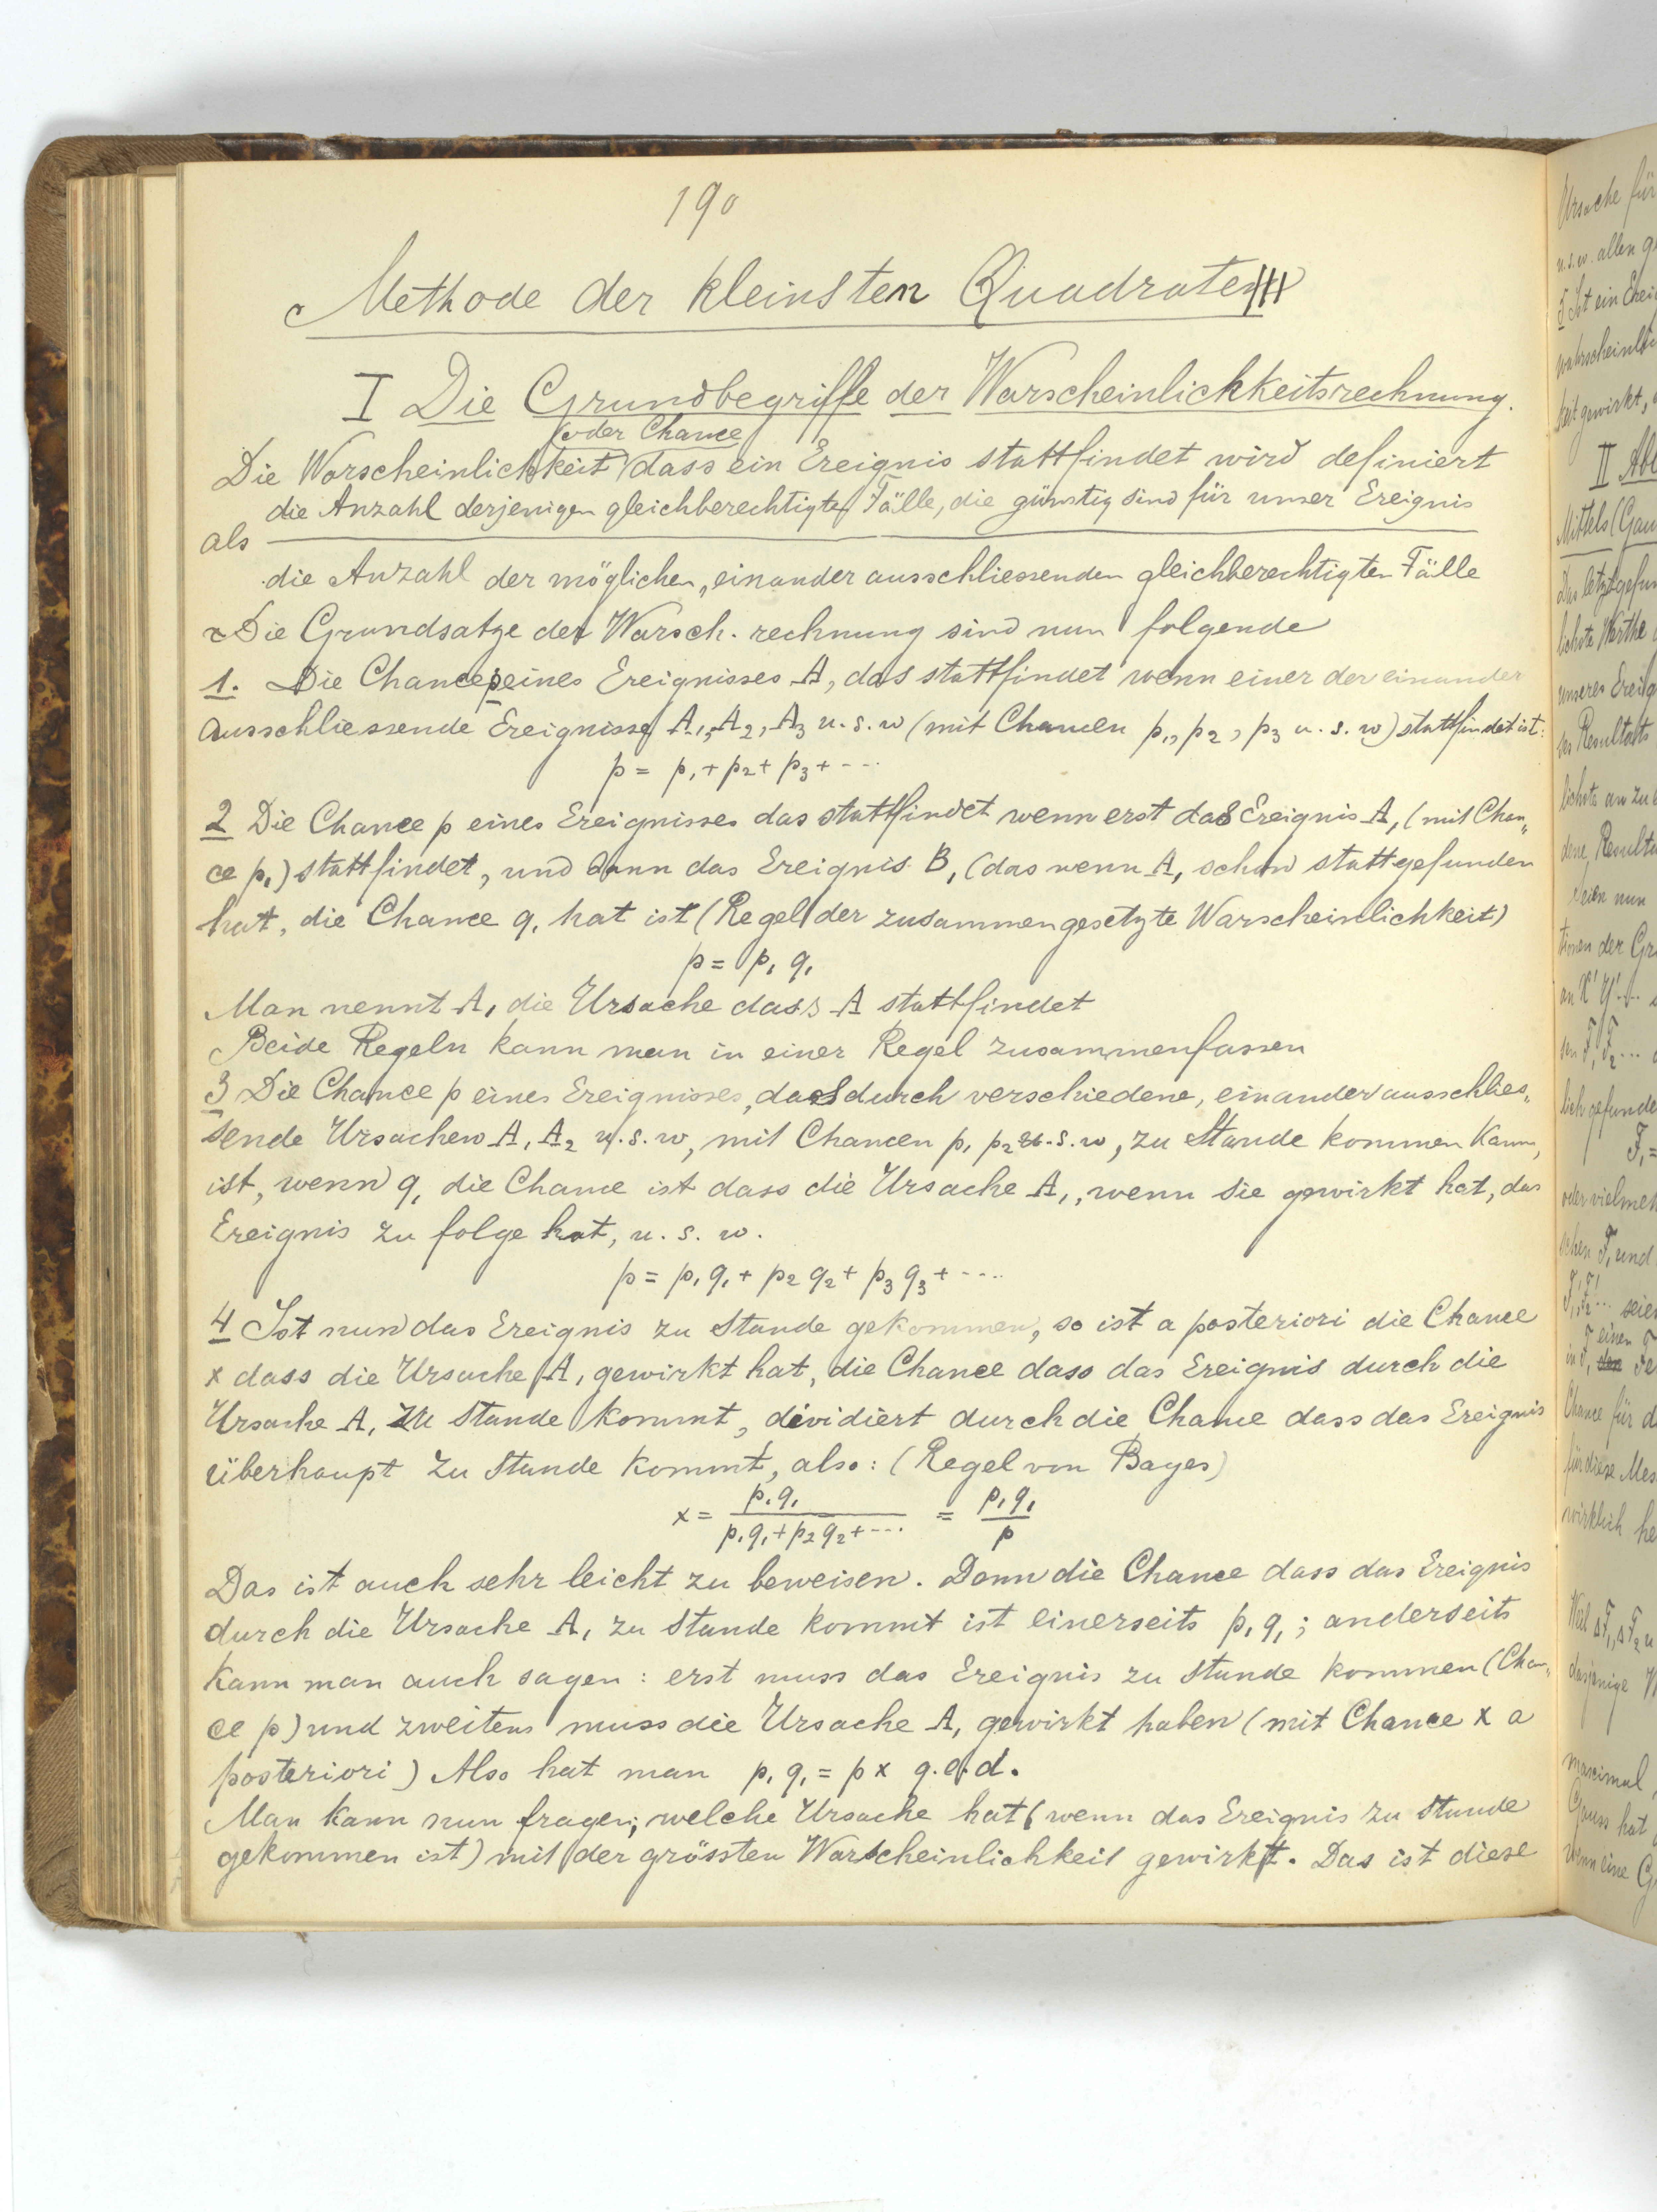 190
Methode der kleinsten Quadrate
I Die Grundbegriffe der Warscheinlichkeitsrechnung.
(oder Chance)
Die Warscheinlichkeit dass ein Ereignis stattfindet wird definiert
die Anzahl derjenigen gleichberechtigten Fälle, die günstig sind für unser Ereignis
als
die Anzahl der möglichen, einander ausschliessenden gleichberechtigten Fälle
Die Grundsatze der Warsch. rechnung sind nun folgende
1. Die Chance p eines Ereignisses A, das stattfindet wenn einer der einander
ausschliessende Ereignisse A₁, A₂, A₃ u. s. w (mit Chancen p₁, p₂, p₃ u. s. w) stattfindet ist:
p = p₁ + p₂ + p₃ + ---
2 Die Chance p eines Ereignisses das stattfindet wenn erst das Ereignis A₁ (mit Chan„
ce p₁) stattfindet, und dann das Ereignis B₁ (das wenn A₁ schon stattgefunden
hat, die Chance q₁ hat ist (Regel der zusammengesetzte Warscheinlichkeit)
p = p₁ q₁
Man nennt A₁ die Ursache dass A stattfindet
Beide Regeln kann man in einer Regel zusammenfassen
3 Die Chance p eines Ereignisses, das durch verschiedene, einander ausschlies„
sende Ursachen A₁ A₂ u. s. w, mit Chancen p₁ p₂ u. s. w, zu Stande kommen kann,
ist, wenn q₁ die Chance ist dass die Ursache A₁, wenn sie gewirkt hat, das
Ereignis zu folge hat, u. s. w.
p = p₁ q₁ + p₂ q₂ + p₃ q₃ + ----
4 Ist nun das Ereignis zu Stande gekommen, so ist a posteriori die Chance
x dass die Ursache A₁ gewirkt hat, die Chance dass das Ereignis durch die
Ursache A₁ zu Stande kommt, dividiert durch die Chance dass das Ereignis
überhaupt zu Stande kommt, also: (Regel von Bayes)
x = p₁q₁ / (p₁q₁ + p₂q₂ + ---) = p₁q₁ / p
Das ist auch sehr leicht zu beweisen. Denn die Chance dass das Ereignis
durch die Ursache A₁ zu Stande kommt ist einerseits p₁ q₁; anderseits
kann man auch sagen: erst muss das Ereignis zu Stande kommen (Chan„
ce p) und zweitens muss die Ursache A₁ gewirkt haben (mit Chance x a
posteriori) Also hat man p₁ q₁ = p x q.e.d.
Man kann nun fragen; welche Ursache hat (wenn das Ereignis zu Stande
gekommen ist) mit der grössten Warscheinlichkeit gewirkt. Das ist diese
Ursache für
u.s.w. allen
5 Ist ein
gewirkt,
II
Mittels
unseres
des Resultats
nun
oder vielmehr
und
einen
Chance für
für diese
wirklich
Weil
dasjenige
maximal,
Gauss hat
wenn eine